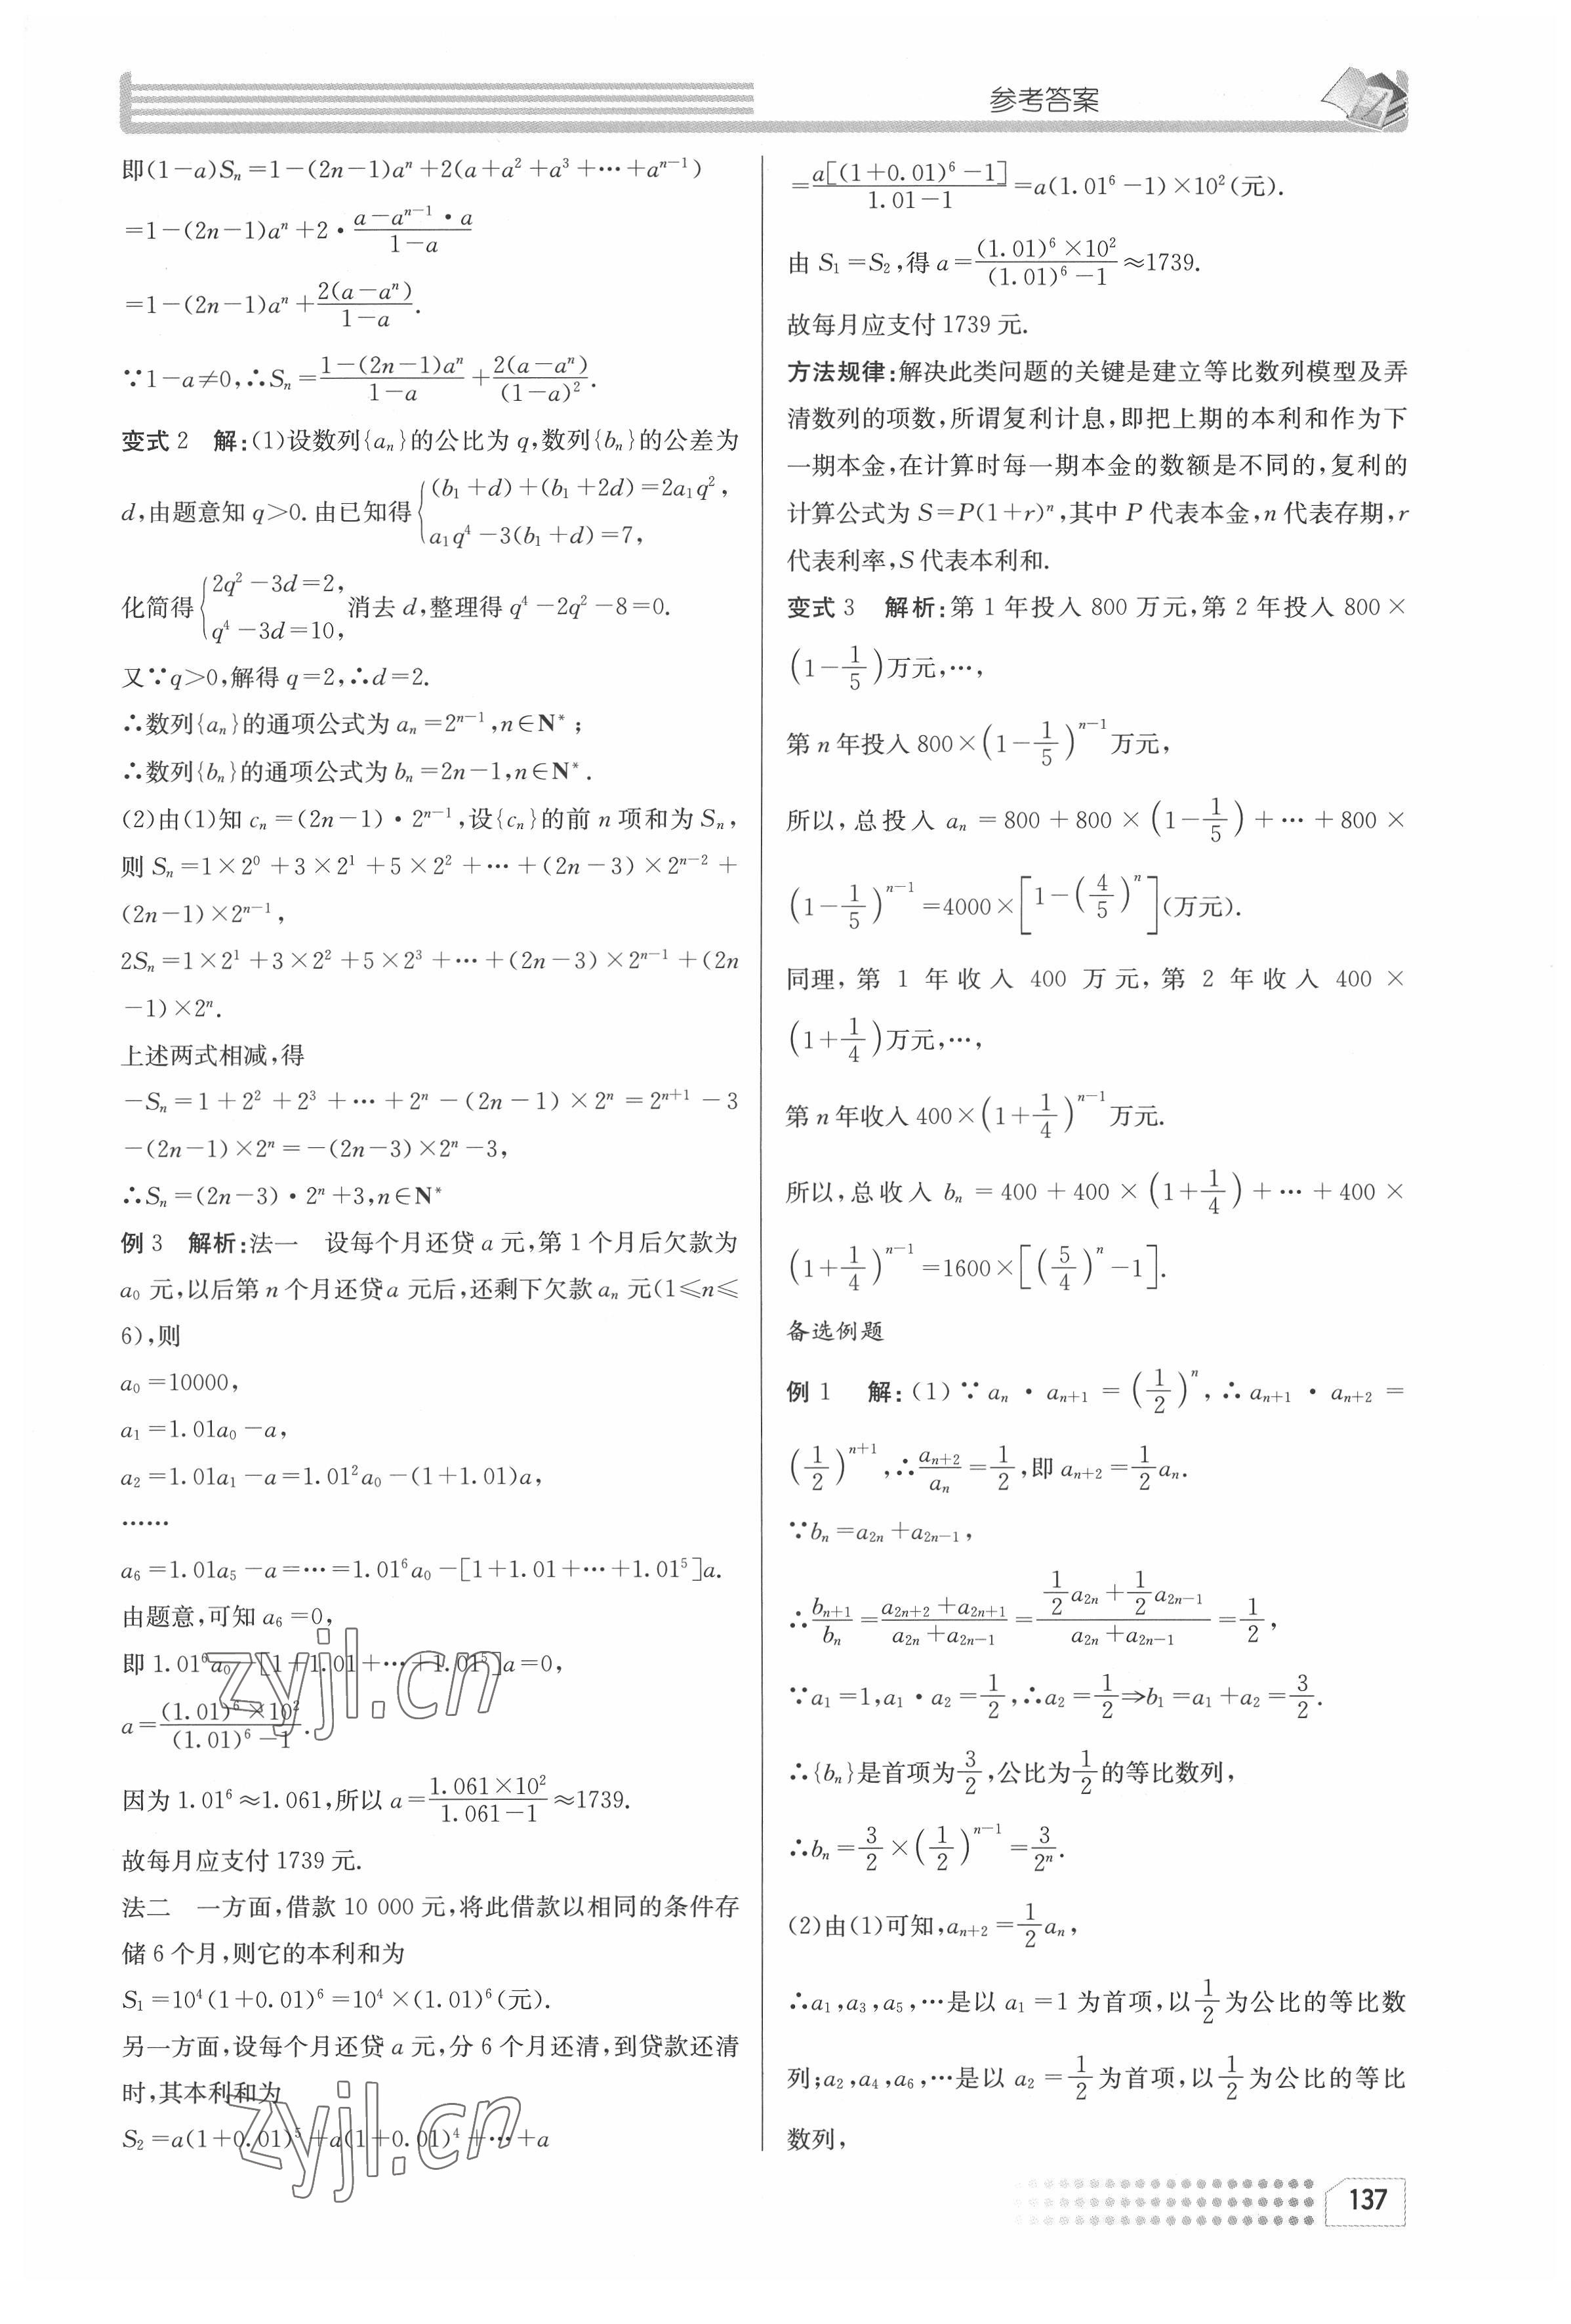 参考答案
即(1-a)Sₙ=1-(2n-1)aⁿ+2(a+a²+a³+…+aⁿ⁻¹)
=1-(2n-1)aⁿ+2·(a-aⁿ⁻¹·a)/(1-a)
=1-(2n-1)aⁿ+2(a-aⁿ)/(1-a).
∵1-a≠0,∴Sₙ=[1-(2n-1)aⁿ]/(1-a)+2(a-aⁿ)/(1-a)².
变式2 解:(1)设数列{aₙ}的公比为q,数列{bₙ}的公差为
d,由题意知q>0.由已知得{(b₁+d)+(b₁+2d)=2a₁q²,
a₁q⁴-3(b₁+d)=7,
化简得{2q²-3d=2,
q⁴-3d=10,消去d,整理得q⁴-2q²-8=0.
又∵q>0,解得q=2,∴d=2.
∴数列{aₙ}的通项公式为aₙ=2ⁿ⁻¹,n∈N*;
∴数列{bₙ}的通项公式为bₙ=2n-1,n∈N*.
(2)由(1)知cₙ=(2n-1)·2ⁿ⁻¹,设{cₙ}的前n项和为Sₙ,
则Sₙ=1×2⁰+3×2¹+5×2²+…+(2n-3)×2ⁿ⁻²+
(2n-1)×2ⁿ⁻¹,
2Sₙ=1×2¹+3×2²+5×2³+…+(2n-3)×2ⁿ⁻¹+(2n
-1)×2ⁿ.
上述两式相减,得
-Sₙ=1+2²+2³+…+2ⁿ-(2n-1)×2ⁿ=2ⁿ⁺¹-3
-(2n-1)×2ⁿ=-(2n-3)×2ⁿ-3,
∴Sₙ=(2n-3)·2ⁿ+3,n∈N*
例3 解析:法一 设每个月还贷a元,第1个月后欠款为
a₀元,以后第n个月还贷a元后,还剩下欠款aₙ元(1≤n≤
6),则
a₀=10000,
a₁=1.01a₀-a,
a₂=1.01a₁-a=1.01²a₀-(1+1.01)a,
……
a₆=1.01a₅-a=…=1.01⁶a₀-[1+1.01+…+1.01⁵]a.
由题意,可知a₆=0,
即1.01⁶a₀-[1+1.01+…+1.01⁵]a=0,
a=(1.01)⁶×10²/[(1.01)⁶-1].
因为1.01⁶≈1.061,所以a=(1.061×10²)/(1.061-1)≈1739.
故每月应支付1739元.
法二 一方面,借款10 000元,将此借款以相同的条件存
储6个月,则它的本利和为
S₁=10⁴(1+0.01)⁶=10⁴×(1.01)⁶(元).
另一方面,设每个月还贷a元,分6个月还清,到贷款还清
时,其本利和为
S₂=a(1+0.01)⁵+a(1+0.01)⁴+…+a
=a[(1+0.01)⁶-1]/(1.01-1)=a(1.01⁶-1)×10²(元).
由S₁=S₂,得a=(1.01)⁶×10²/[(1.01)⁶-1]≈1739.
故每月应支付1739元.
方法规律:解决此类问题的关键是建立等比数列模型及弄
清数列的项数,所谓复利计息,即把上期的本利和作为下
一期本金,在计算时每一期本金的数额是不同的,复利的
计算公式为S=P(1+r)ⁿ,其中P代表本金,n代表存期,r
代表利率,S代表本利和.
变式3 解析:第1年投入800万元,第2年投入800×
(1-1/5)万元,…,
第n年投入800×(1-1/5)ⁿ⁻¹万元,
所以,总投入aₙ=800+800×(1-1/5)+…+800×
(1-1/5)ⁿ⁻¹=4000×[1-(4/5)ⁿ](万元).
同理,第1年收入400万元,第2年收入400×
(1+1/4)万元,…,
第n年收入400×(1+1/4)ⁿ⁻¹万元.
所以,总收入bₙ=400+400×(1+1/4)+…+400×
(1+1/4)ⁿ⁻¹=1600×[(5/4)ⁿ-1].
备选例题
例1 解:(1)∵aₙ·aₙ₊₁=(1/2)ⁿ,∴aₙ₊₁·aₙ₊₂=
(1/2)ⁿ⁺¹,∴aₙ₊₂/aₙ=1/2,即aₙ₊₂=1/2aₙ.
∵bₙ=a₂ₙ+a₂ₙ₋₁,
∴bₙ₊₁/bₙ=(a₂ₙ₊₂+a₂ₙ₊₁)/(a₂ₙ+a₂ₙ₋₁)=(1/2a₂ₙ+1/2a₂ₙ₋₁)/(a₂ₙ+a₂ₙ₋₁)=1/2,
∵a₁=1,a₁·a₂=1/2,∴a₂=1/2⇒b₁=a₁+a₂=3/2.
∴{bₙ}是首项为3/2,公比为1/2的等比数列,
∴bₙ=3/2×(1/2)ⁿ⁻¹=3/2ⁿ.
(2)由(1)可知,aₙ₊₂=1/2aₙ,
∴a₁,a₃,a₅,…是以a₁=1为首项,以1/2为公比的等比数
列;a₂,a₄,a₆,…是以a₂=1/2为首项,以1/2为公比的等比
数列,
zyjl.cn
zyjl.cn
137